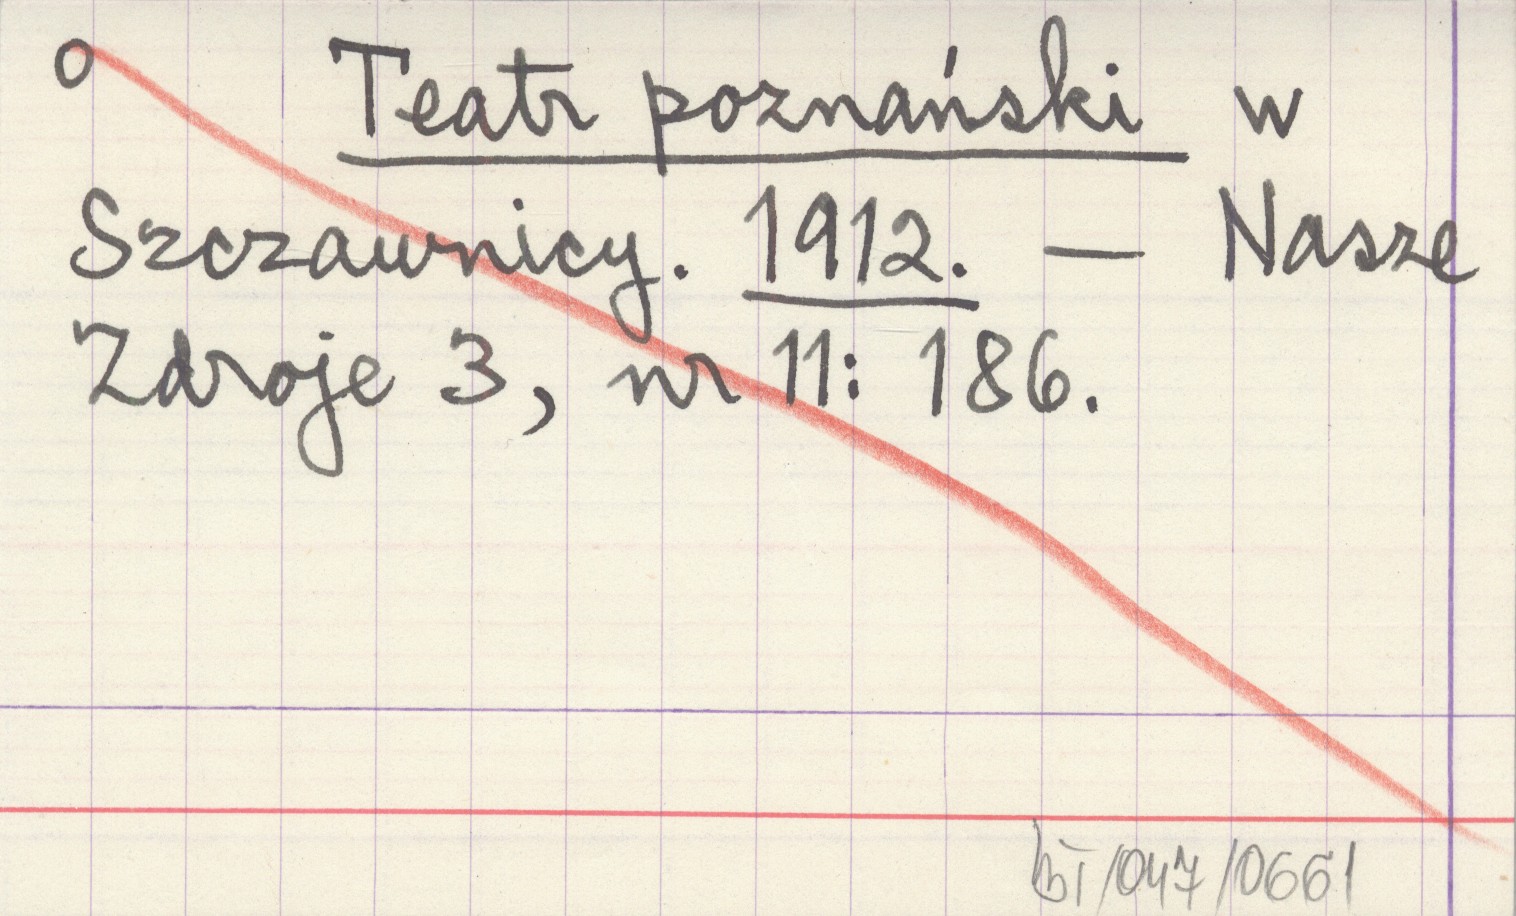 o Teatr poznański w
Szczawnicy. 1912. — Nasze
Zdroje 3, nr 11: 186.
bT/047/0661